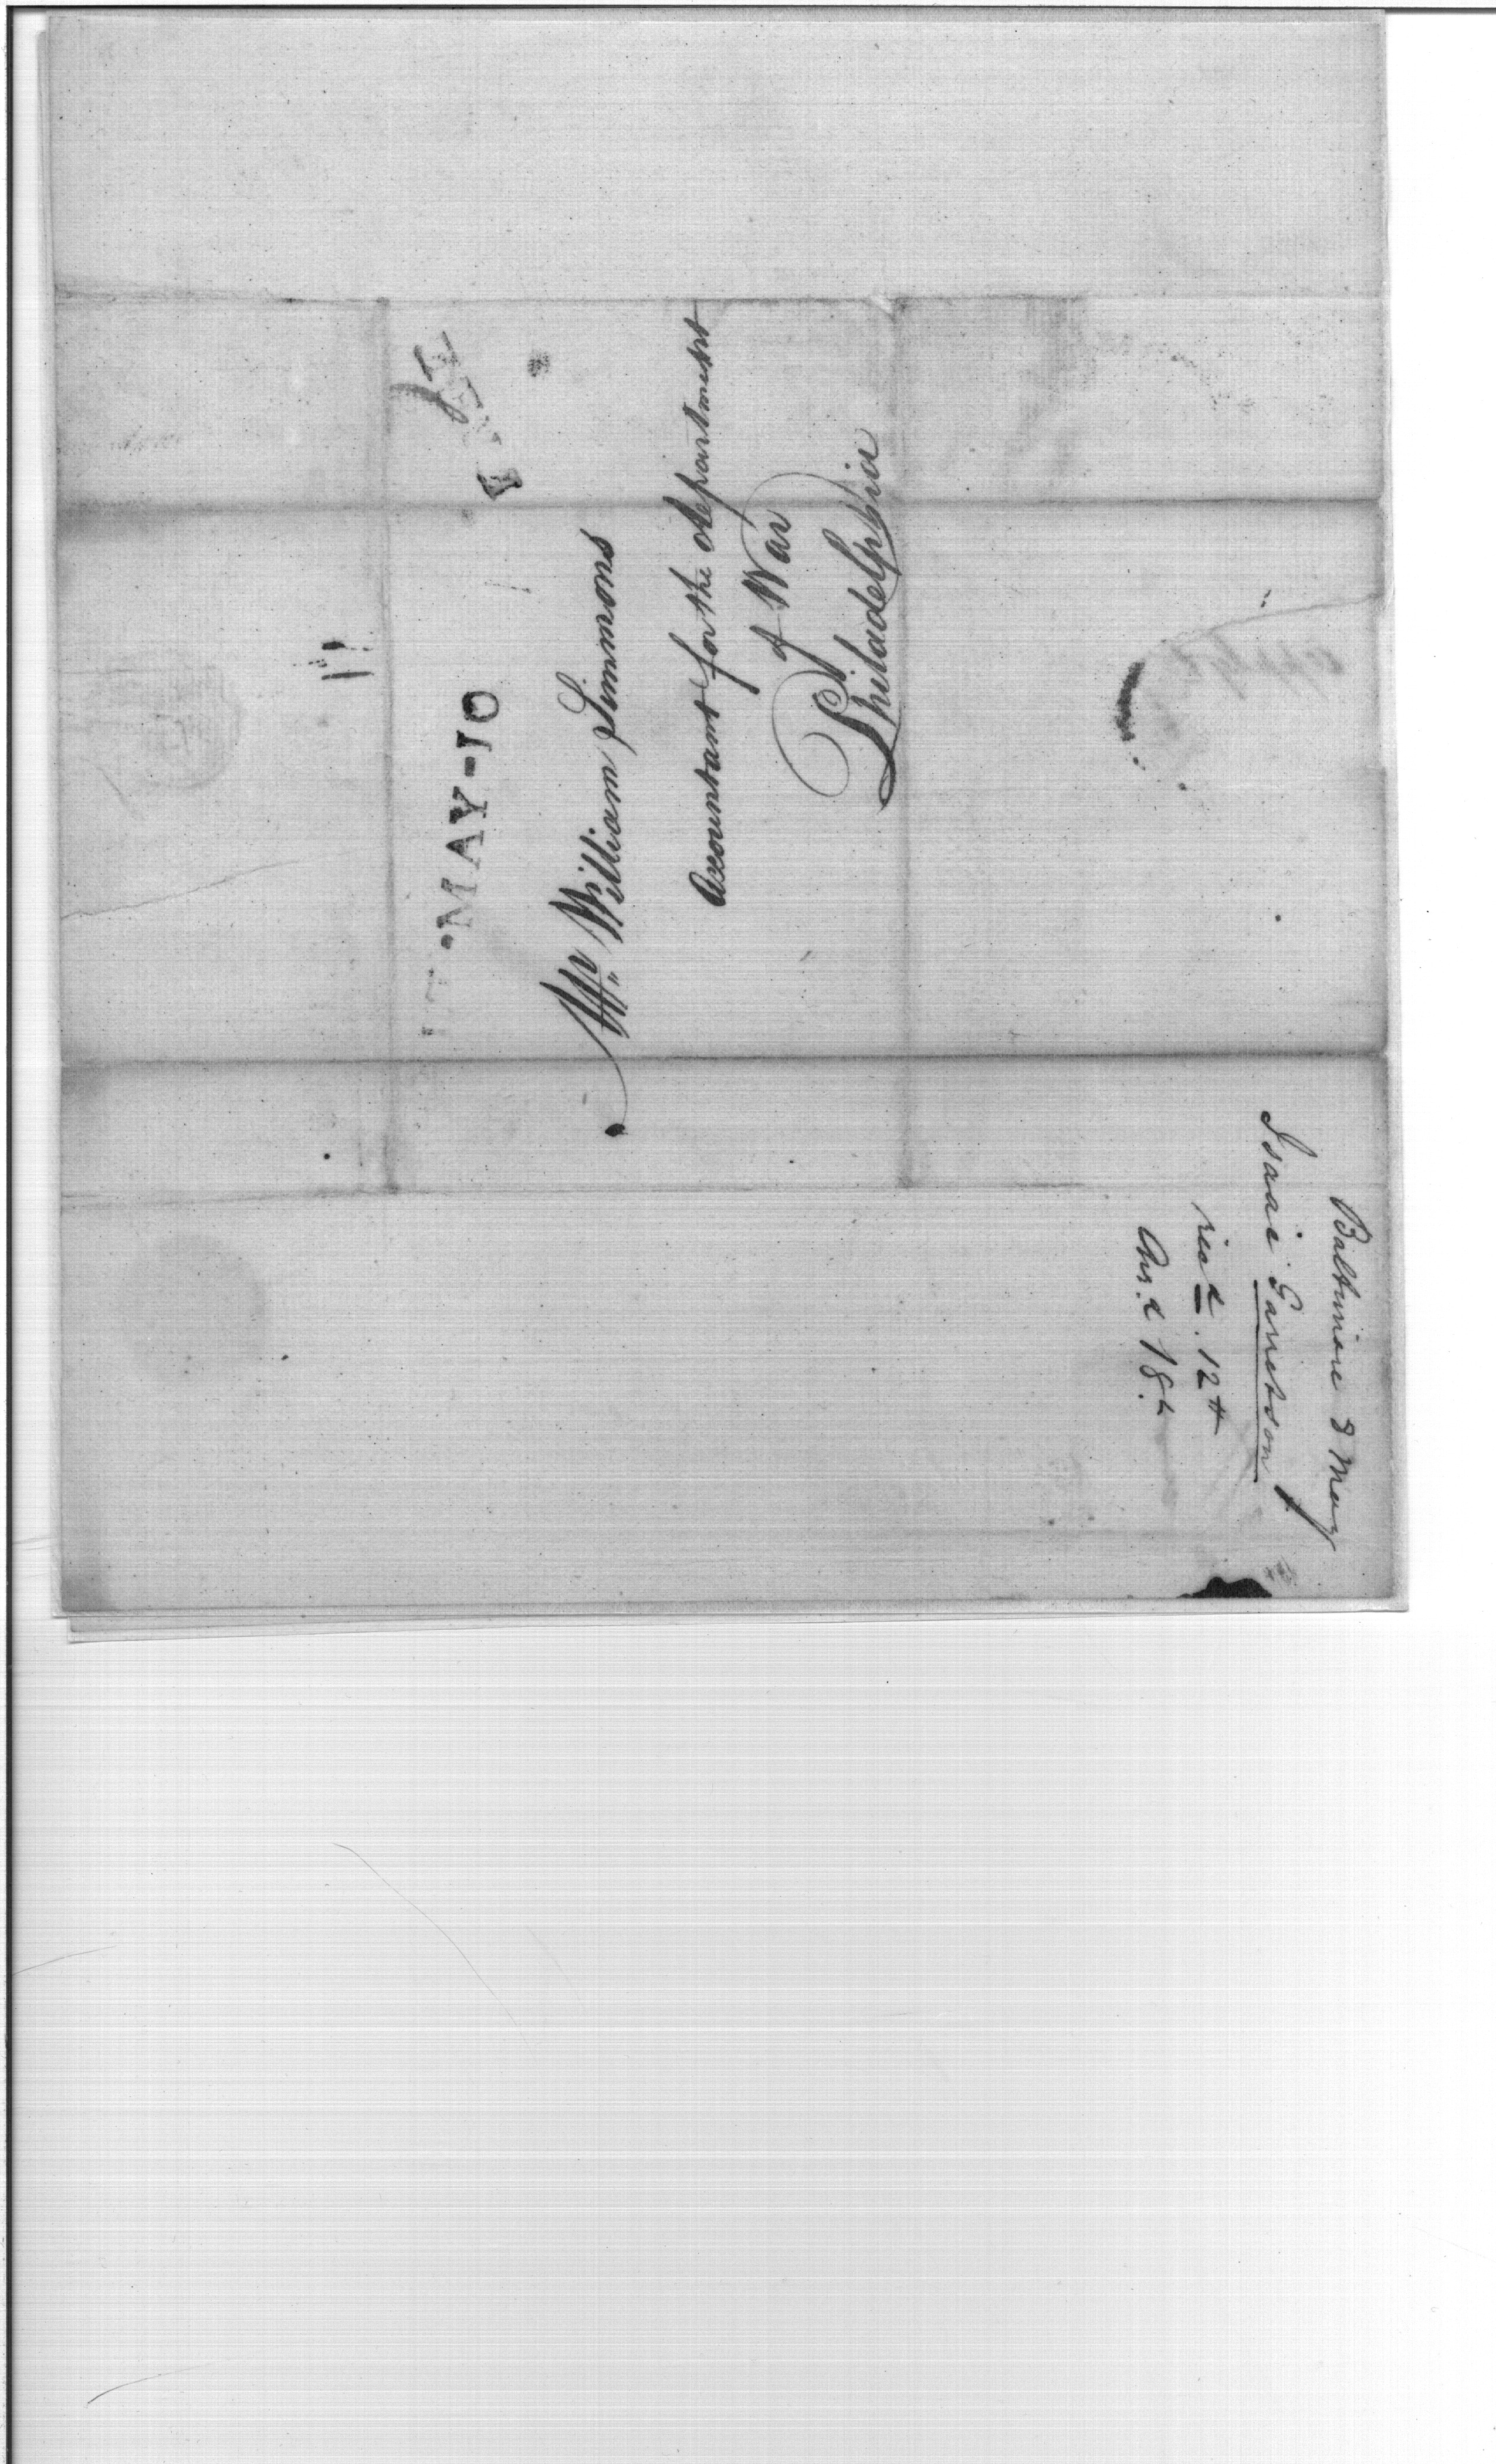 MAY-10
Mr. William Simmons
Accountant for the Department
of War
Philadelphia
Baltimore 8 May
Isaac Garretson
recd. 12th
Ansd 18th